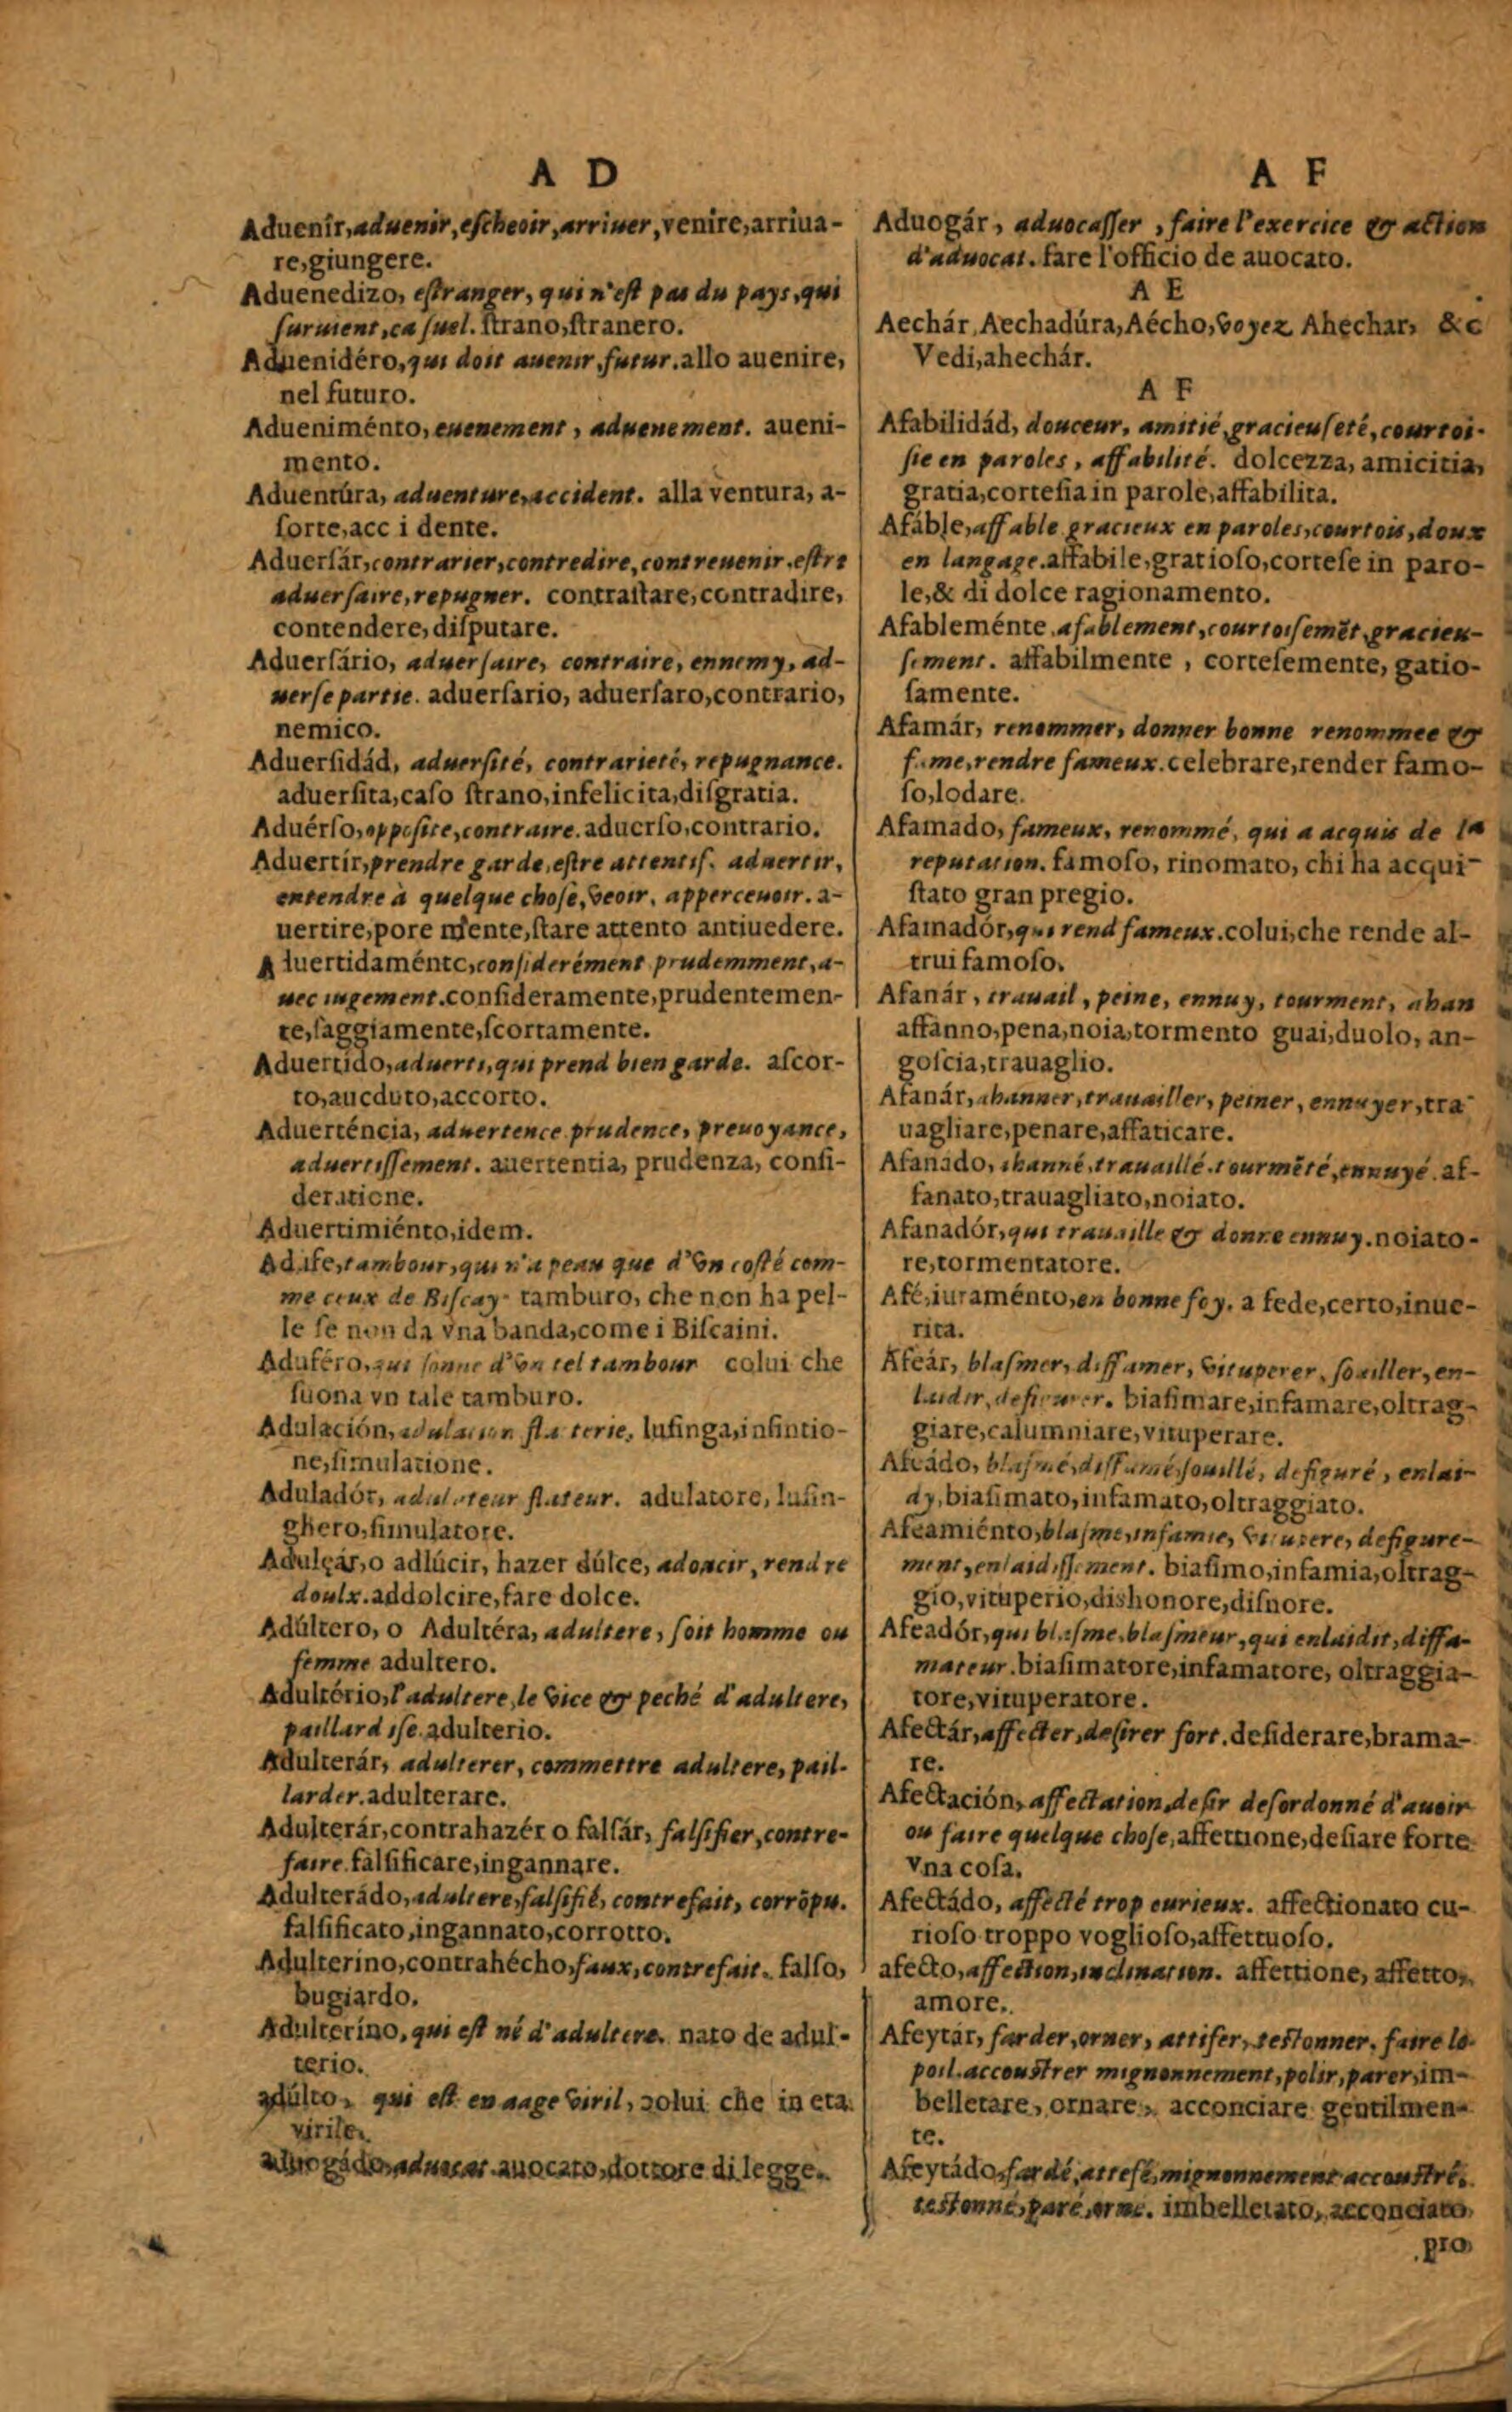 A D
Aduenir, aduenir, eſcheoir, arriuer, venire, arriua-
re, giungere.
Aduenedizo, eſtranger, qui n'eſt pas du pays, qui
ſuruient, caſuel. ſtrano, ſtranero.
Aduenidéro, qui doit auenir, futur. allo auenire,
nel futuro.
Adueniménto, euenement, aduenement. aueni-
mento.
Aduentúra, aduenture, accident. alla ventura, a-
ſorte, acc i dente.
Aduerſár, contrarier, contredire, contreuenir. eſtre
aduerſaire, repugner. contraſtare, contradire,
contendere, diſputare.
Aduerſário, aduerſaire, contraire, ennemy, ad-
uerſe partie. aduerſario, aduerſaro, contrario,
nemico.
Aduerſidád, aduerſité, contrarieté, repugnance.
aduerſita, caſo ſtrano, infelicita, diſgratia.
Aduérſo, oppoſite, contraire. aduerſo, contrario.
Aduertír, prendre garde, eſtre attentif. aduertir,
entendre à quelque choſe, veoir, apperceuoir. a-
uertire, pore mente, ſtare attento antiuedere.
Aduertidaménte, conſiderément prudemment, a-
uec iugement. conſideramente, prudentemen-
te, ſaggiamente, ſcortamente.
Aduertido, aduerti, qui prend bien garde. aſcor-
to, aueduto, accorto.
Aduerténcia, aduertence prudence, preuoyance,
aduertiſſement. auertentia, prudenza, conſi-
deratione.
Aduertimiénto, idem.
Adufe, tambour, qui n'a peau que d'vn coſté com-
me ceux de Biſcay. tamburo, che non ha pel-
le ſe non da vna banda, come i Biſcaini.
Aduféro, qui ſonne d'vn tel tambour colui che
ſuona vn tale tamburo.
Adulación, adulation flaterie, luſinga, inſintio-
ne, ſimulatione.
Aduladór, adulateur flateur. adulatore, luſin-
ghero, ſimulatore.
Adulçár, o adlúcir, hazer dúlce, adoucir, rendre
doulx. addolcire, fare dolce.
Adúltero, o Adultéra, adultere, ſoit homme ou
femme adultero.
Adultério, l'adultere, le vice & peché d'adultere,
paillardiſe. adulterio.
Adulterár, adulterer, commettre adultere, pail-
larder. adulterare.
Adulterár, contrahazér o falſár, falſifier, contre-
faire. falſificare, ingannare.
Adulterádo, adultere, falſifié, contrefait, corrōpu.
falſificato, ingannato, corrotto.
Adulterino, contrahécho, faux, contrefait. falſo,
bugiardo.
Adulteríno, qui eſt né d'adultere. nato de adul-
terio.
adúlto, qui eſt en aage viril, colui che in eta
virile.
aduogádo, aduocat. auocato, dottore di legge.
A F
Aduogár, aduocaſſer, faire l'exercice & action
d'aduocat. fare l'officio de auocato.
A E
Aechár, Aechadúra, Aécho, voyez Ahechar, &c
Vedi, ahechár.
A F
Afabilidád, douceur, amitié, gracieuſeté, courtoi-
ſie en paroles, affabilité. dolcezza, amicitia,
gratia, corteſia in parole, affabilita.
Afáble, affable gracieux en paroles, courtois, doux
en langage. affabile, gratioſo, corteſe in paro-
le, & di dolce ragionamento.
Afableménte, afablement, courtoiſemēt, gracieu-
ſement. affabilmente, corteſemente, gatio-
ſamente.
Afamár, renommer, donner bonne renommee &
fame, rendre fameux. celebrare, render famo-
ſo, lodare.
Afamado, fameux, renommé, qui a acquis de la
reputation. famoſo, rinomato, chi ha acqui-
ſtato gran pregio.
Afamadór, qui rend fameux. colui, che rende al-
trui famoſo.
Afanár, trauail, peine, ennuy, tourment, ahan
affanno, pena, noia, tormento guai, duolo, an-
goſcia, trauaglio.
Afanár, ahanner, trauailler, peiner, ennuyer, tra-
uagliare, penare, affaticare.
Afanádo, ahanné, trauaillé, tourmēté, ennuyé. af-
fanato, trauagliato, noiato.
Afanadór, qui trauaille & donne ennuy. noiato-
re, tormentatore.
Afé, iuraménto, en bonne foy. a fede, certo, inue-
rita.
Afeár, blaſmer, diffamer, vituperer, ſouiller, en-
laidir, defigurer. biaſimare, infamare, oltrag-
giare, calumniare, vituperare.
Afeádo, blaſmé, diffamé, ſouillé, defiguré, enlai-
dy, biaſimato, infamato, oltraggiato.
Afeamiénto, blaſme, infamie, vitupere, defigure-
ment, enlaidiſſement. biaſimo, infamia, oltrag-
gio, vituperio, dishonore, diſnore.
Afeadór, qui blaſme, blaſmeur, qui enlaidit, diffa-
mateur. biaſimatore, infamatore, oltraggia-
tore, vituperatore.
Afectár, affecter, deſirer fort. deſiderare, brama-
re.
Afectación, affectation, deſir deſordonné d'auoir
ou faire quelque choſe, affettione, deſiare forte
vna coſa.
Afectádo, affecté trop curieux. affectionato cu-
rioſo troppo voglioſo, affettuoſo.
afecto, affection, inclination. affettione, affetto,
amore.
Afeytár, farder, orner, attifer, teſtonner, faire le
poil. accouſtrer mignonnement, polir, parer, im-
belletare, ornare, acconciare gentilmen-
te.
Afeytádo, fardé, attefé, mignonnement accouſtré,
teſtonné, paré, orné. imbelletato, acconciato
pro